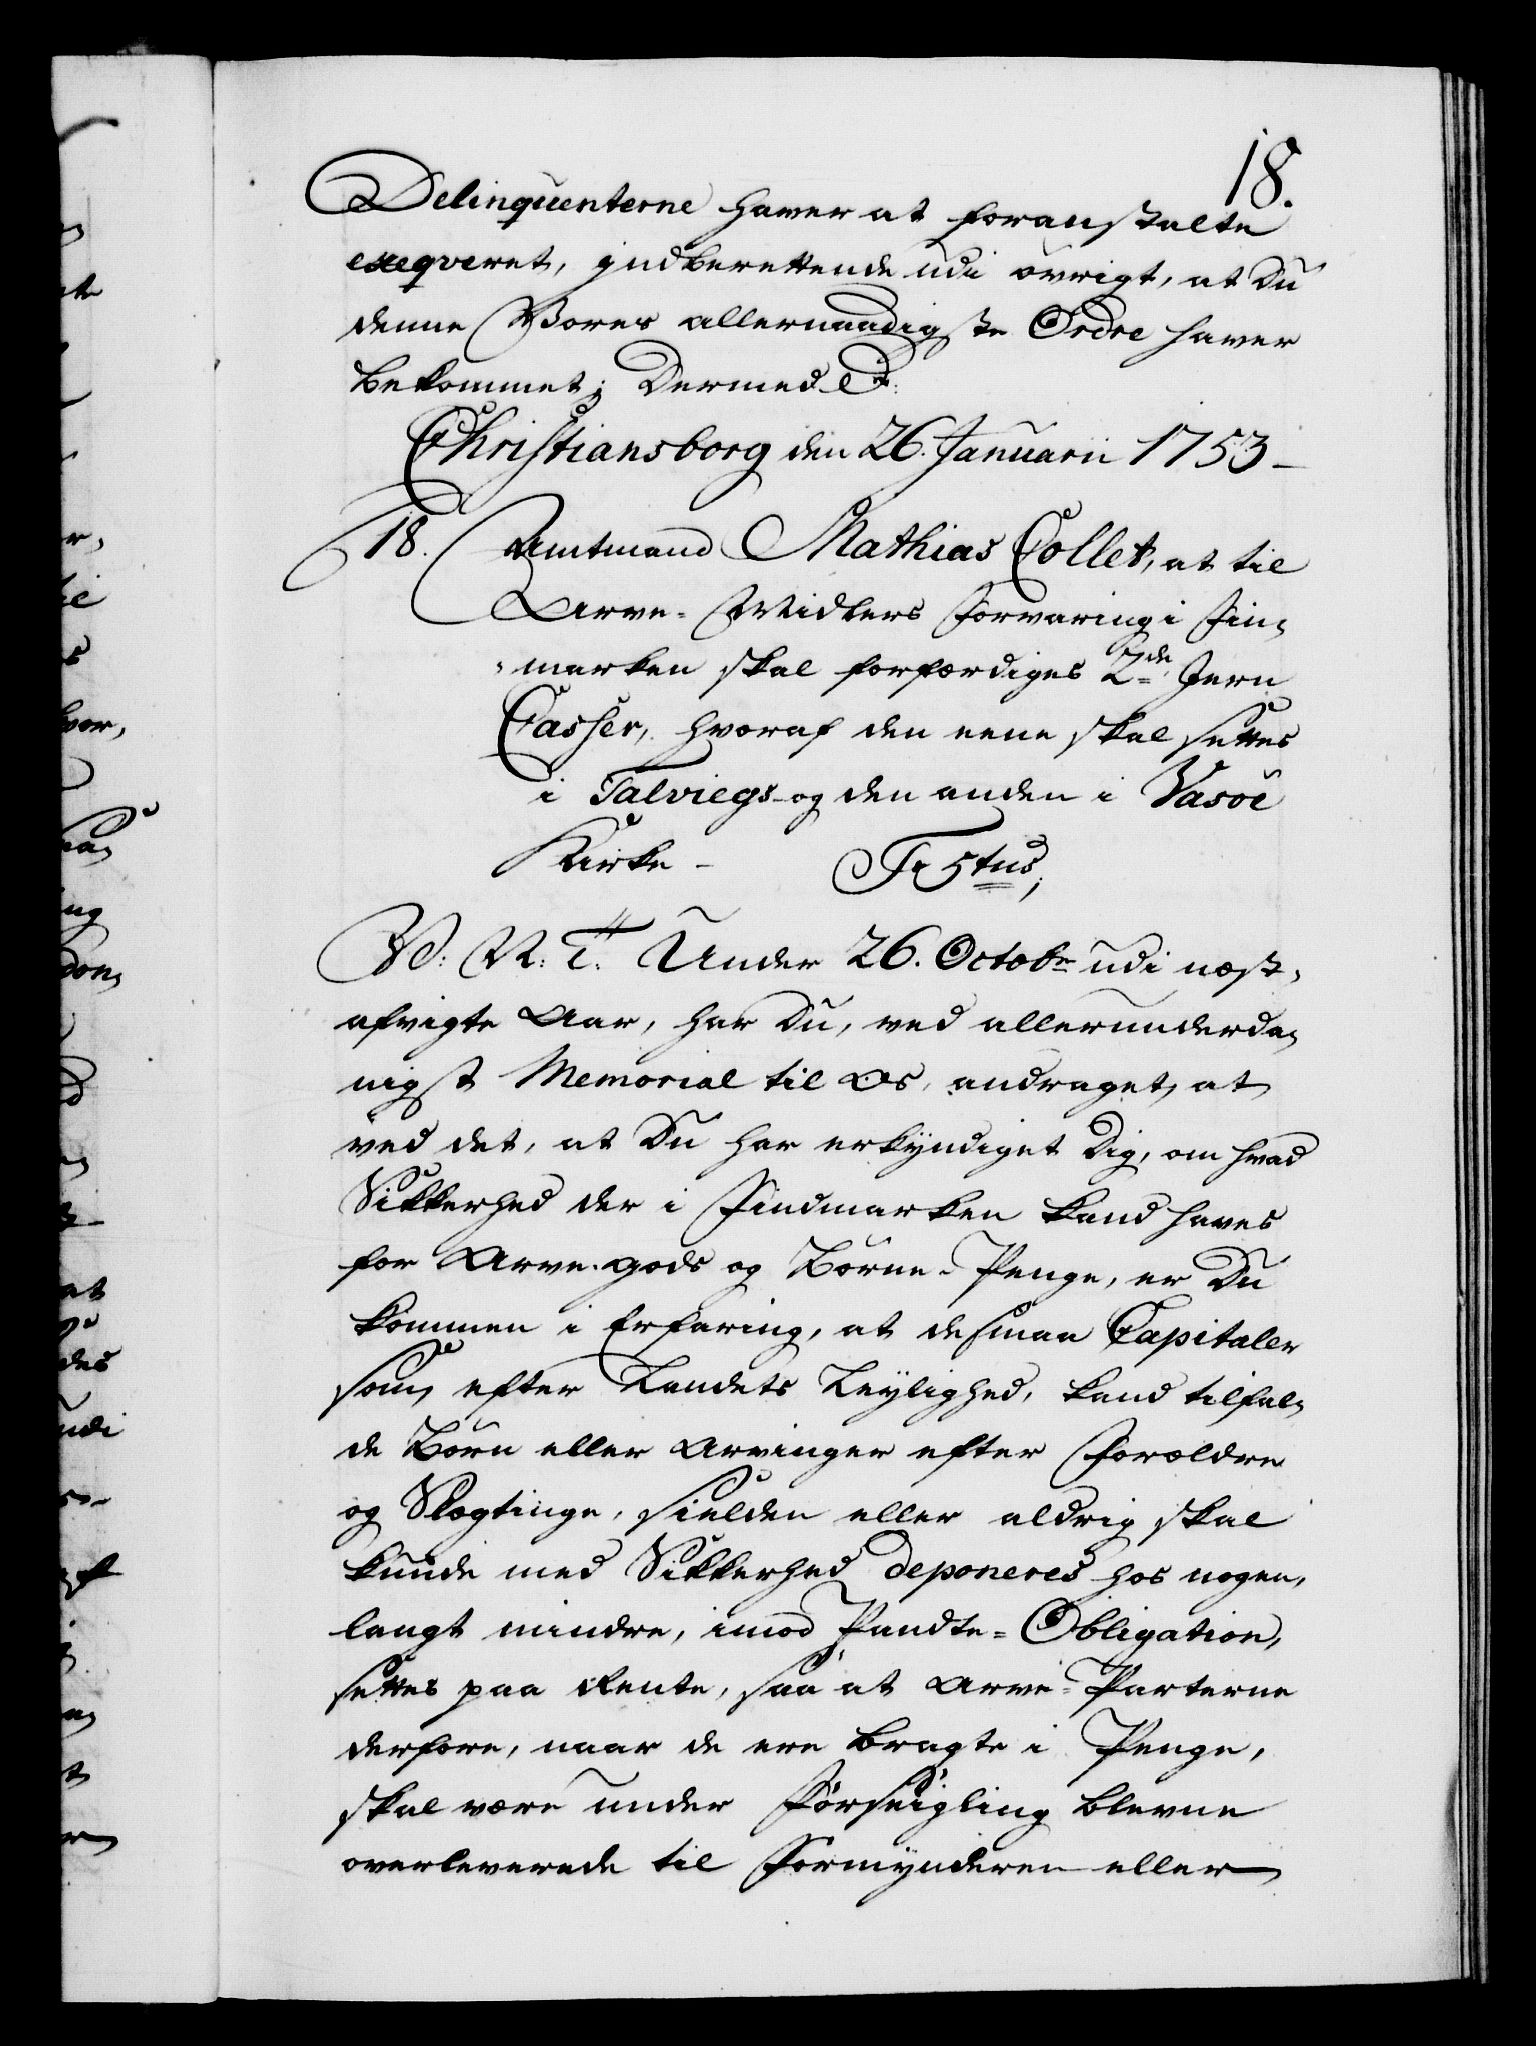 18.
Delinquenterne haver at foranstalte
exeqveret, indberettende udi øvrigt, at Du
denne Vores allernaadigste Ordre haver
bekommet; Dermed etc:
Christiansborg den 26. Januarii 1753 –
18. Amtmand Mathias Collet, at til
Arve-Midlers Forvaring i Fin-
-marken skal forfærdiges 2de Jern
Casser, hvoraf den eene skal settes
i Talviegs- og den anden i Vasöe
Kirke – Fr 5tus,
V: N: T: Under 26. Octobr udi næst-
afvigte Aar, har Du, ved allerunderda-
nigst Memorial til Os, andraget, at
ved det, at Du har erkyndiget Dig, om hvad
Sikkerhed der i Findmarken kand haves
for Arve-gods og Börne-Penge, er Du
kommen i Erfaring, at de smaa Capitaler
som, efter Landets Leylighed, kand tilfal-
de Börn eller Arvinger efter Forældre
og Slægtinge, sielden eller aldrig skal
kunde med Sikkerhed deponeres hos nogen,
langt mindre, imod Pandte-Obligation,
settes paa Rente, saa at Arve-Parterne
derfore, naar de ere bragte i Penge,
skal være under Forseigling blevne
overleverede til Formynderen eller